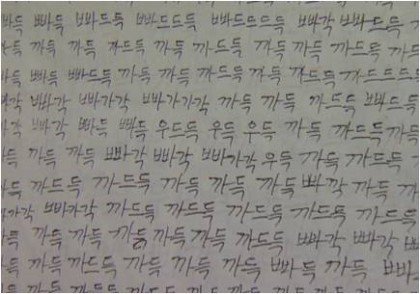 빠득 빠드득 빠드드득 빠드드드득 빠각 빠드드득
까득 까득 까드득 까드득 까득 까득 까드득 까드득
빠득 빠득 빠드득 까득 까득 까드득 까득 까드드득 까드드드득
빠각 빠가각 빠가가각 까득 까득 까드득 빠드득
빠각 빠각 빠득 빠득 우드득 우득 우득 까득 까드득
까득 까득 빠각 빠각 빠가각 우득 까득 까드득
까득 까드득 까드득 까득 까득 빠각 까득
빠가각 빠가각 까드득 까드득 까드득 까드득
까득 까득 까득 까득 까득 까드득 빠각 빠각
까득 까드득 까득 까드득 까득 빠득 까득 빠